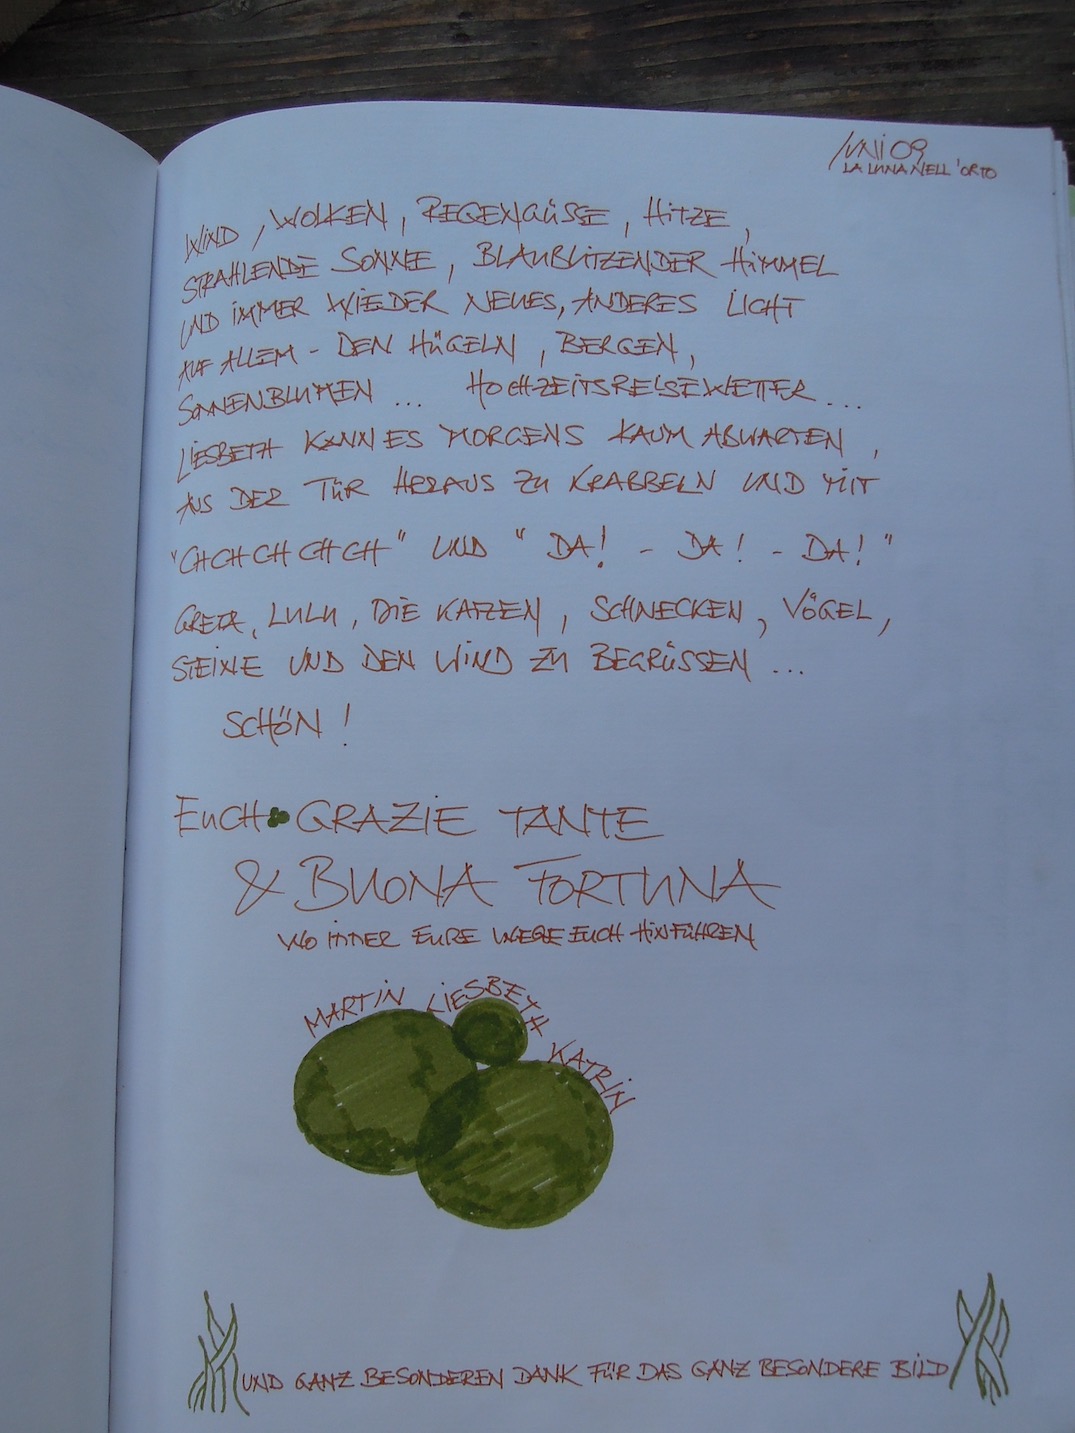 JUNI 09
LA LUNA NELL'ORTO
WIND, WOLKEN, REGENGÜSSE, HITZE,
STRAHLENDE SONNE, BLAUBLITZENDER HIMMEL
UND IMMER WIEDER NEUES, ANDERES LICHT
AUF ALLEM - DEN HÜGELN, BERGEN,
SONNENBLUMEN ... HOCHZEITSREISEWETTER ...
LIESBETH KANN ES MORGENS KAUM ABWARTEN,
AUS DER TÜR HERAUS ZU KRABBELN UND MIT
"CHCHCHCHCH" UND "DA! - DA! - DA!"
GRETA, LULU, DIE KATZEN, SCHNECKEN, VÖGEL,
STEINE UND DEN WIND ZU BEGRÜSSEN ...
SCHÖN!
EUCH GRAZIE TANTE
& BUONA FORTUNA
WO IMMER EURE WEGE EUCH HINFÜHREN
MARTIN LIESBETH KATRIN
UND GANZ BESONDEREN DANK FÜR DAS GANZ BESONDERE BILD